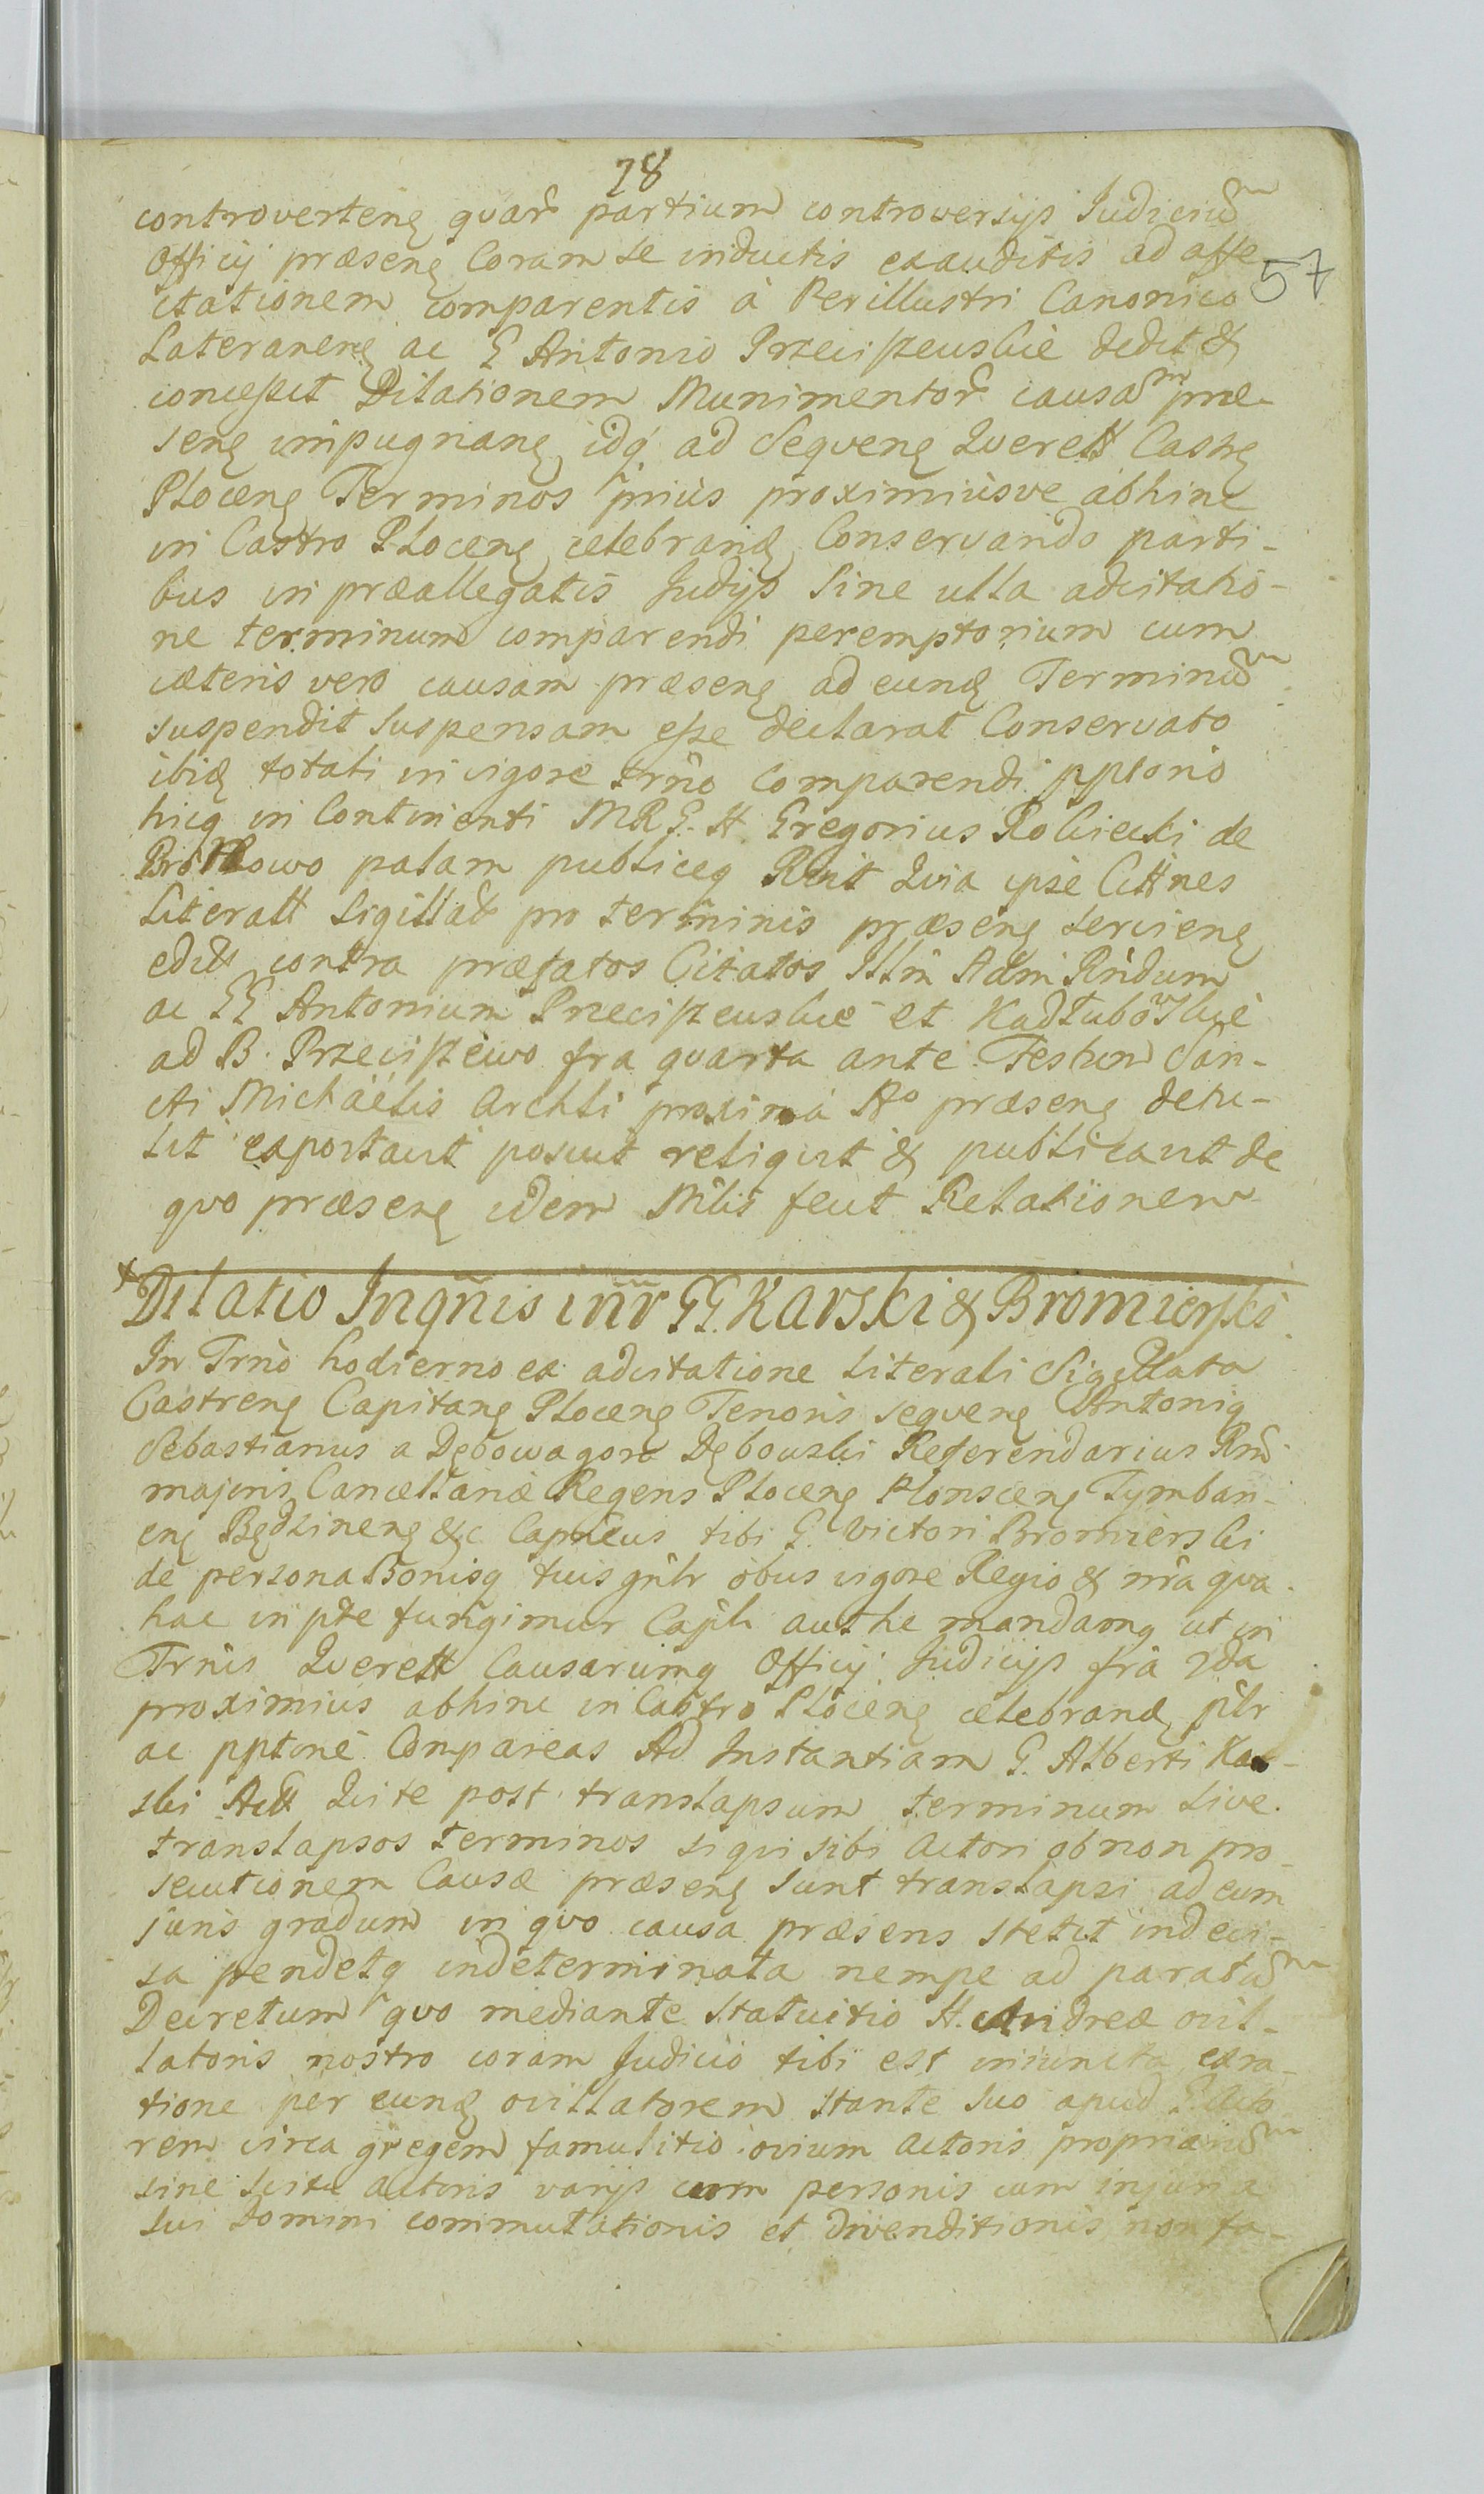 78
controverteng quar partium controversijs Judiciũ
Officij præseng Coram se inductis exauditis ad affe
ctationem comparentis à Perillustri Canonico 57
Lateraneng ac G Antonio Przeciszewskie dedit &
concessit Dilationem Munimentor causã præ-
seng impugnang idq ad Sequeng Querell Castrg
Ploceng Terminos prius proximiusve abhinc
in Castro Ploceng celebrand Conservando parti-
bus in præallegatis Judijs Sine ulla adcitatio-
ne terminum comparendi peremptorium cum
cæteris vero causam præseng ad eund Terminũ
suspendit suspensam esse declarat Conservato
ibid totali in vigore trño comparendi pptorio
hicq in Continenti MRG. H Gregorius Rokicki de
palam publiceq Rdit Quia ipse Cittnes
Literall Sigillat pro terminis præseng servieng
edit contra præfatos Citatos Illm Adm Rñdum
ac GG Antonium Przeciszewskie et Kadłubowskie
ad B. Przeciszewo fra quarta ante Festum San-
cti Michaëlis Archli proxima Ao præseng detu-
lit exportavit posuit reliquit & publicavit de
quo præseng idem Mñlis fecit Relationem
Dilatio Inqñis inr GG. Karski & Bromierski
In Trño hodierno ex adcitatione Literali Sigillata
Castreng Capitang Ploceng Tenoris sequeng Antonig
Sebastianus a Dębowagora Dębowski Referendarius Rni
majoris Cancellariæ Regens Ploceng Plonsceng Tymbar-
eng Będzineng &c Capñeus tibi G. Victori Bromierski
de persona Bonisq tuis gñlr obus vigore Regio & nr̃a qua
hac in pte fungimur Capñli authe mandamg ut in
Trñis Querell Causarumq Officij Judicijs fra 2da
proximius abhinc in Castro Ploceng celebrand pñlr
ac pptorie Compareas Ad Instantiam G. Alberti Kar-
ski Act Qui te post translapsum terminum sive
translapsos terminos si qui sibi Actori ob non pro-
secutionem Causæ præseng sunt translapsi ad eum
juris gradum in quo causa præsens stetit indeci-
sa pendetq indeterminata nempe ad paratũ
Decretum quo mediante Statuitio H. Andreæ ovil-
latoris nostro coram Judicio tibi est iniuncta exra-
tione per eund ovillatorem stante suo apud G. Acto
rem circa gregem famulitio ovium Actoris propriarũ
sine scitu Actoris varijs cum personis cum injuria
sui Domini commutationis et divenditionis non fa-